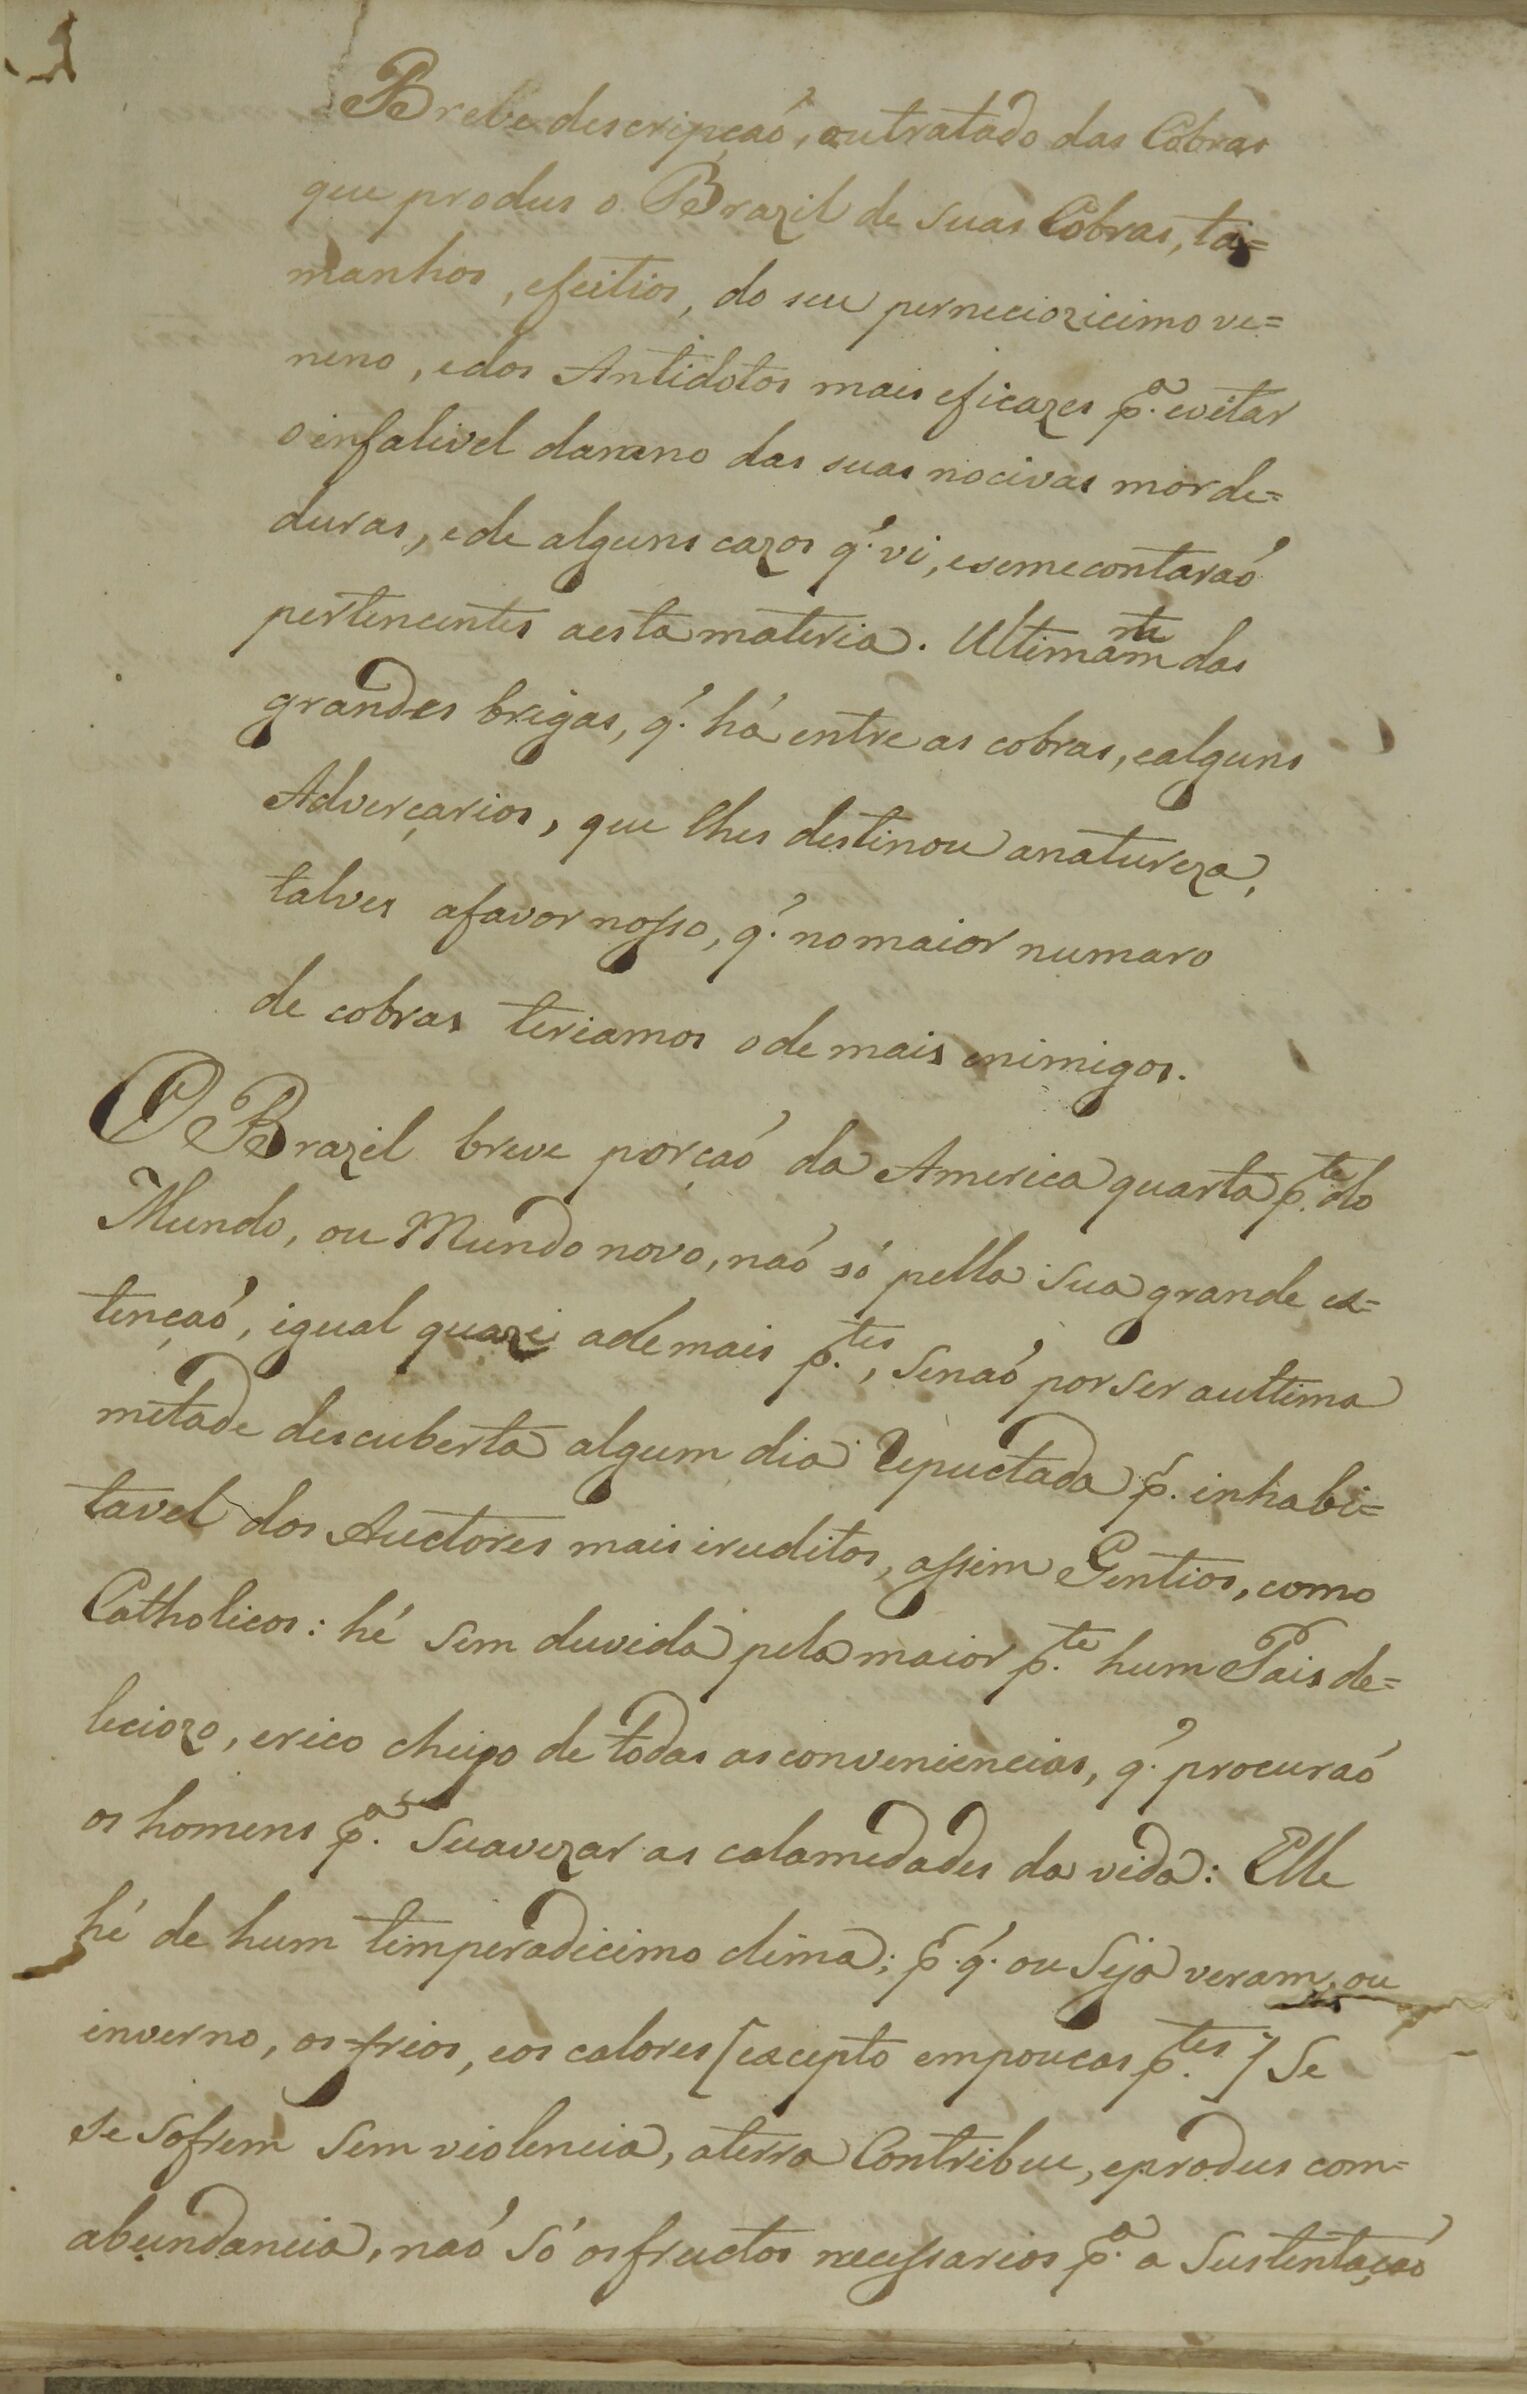 Brebe descripçaó, ou tratado das Cobras
que produs o Brazil de suas Cobras, ta=
manhos, efeitios, do seu perneciozicimo ve=
neno, e dos Antidotos mais eficazes p.ª evitar
o infalivel damno das suas nocivas morde=
duras, e de alguns cazos q.' vi, e se me contaraó
pertencentes a esta materia. Ultimam.te das
grandes brigas, q.' há entre as cobras, e alguns
Adverçarios, que lhes destinou a natureza,
talves a favor nosso, q.' no maior numaro
de cobras teriamos o de mais enimigos.
O Brazil breve porçaó da America quarta p.te do
Mundo, ou Mundo novo, naó só pella sua grande es=
tençaó, igual quazi ademais p.tes, senaó por ser a ultima
metade descuberta algum dia Repuctada p.' inhabi=
tavel dos Auctores mais iruditos, assim Gentios, como
Catholicos: hé sem duvida pela maior p.te hum Pais de=
leciozo, e rico cheijo de todas as conveniencias, q.' procuraó
os homens p.ª suavezar as calamedades da vida: Elle
hé de hum temperadicimo clima; p.' q.' ou seja veram, ou
inverno, os frios, e os calores [excepto em poucas p.tes] se
se sofrem sem violencia, a terra contribue, e produs com=
abundancia, naó só os fructos necessarios p.ª a sustentaçaó